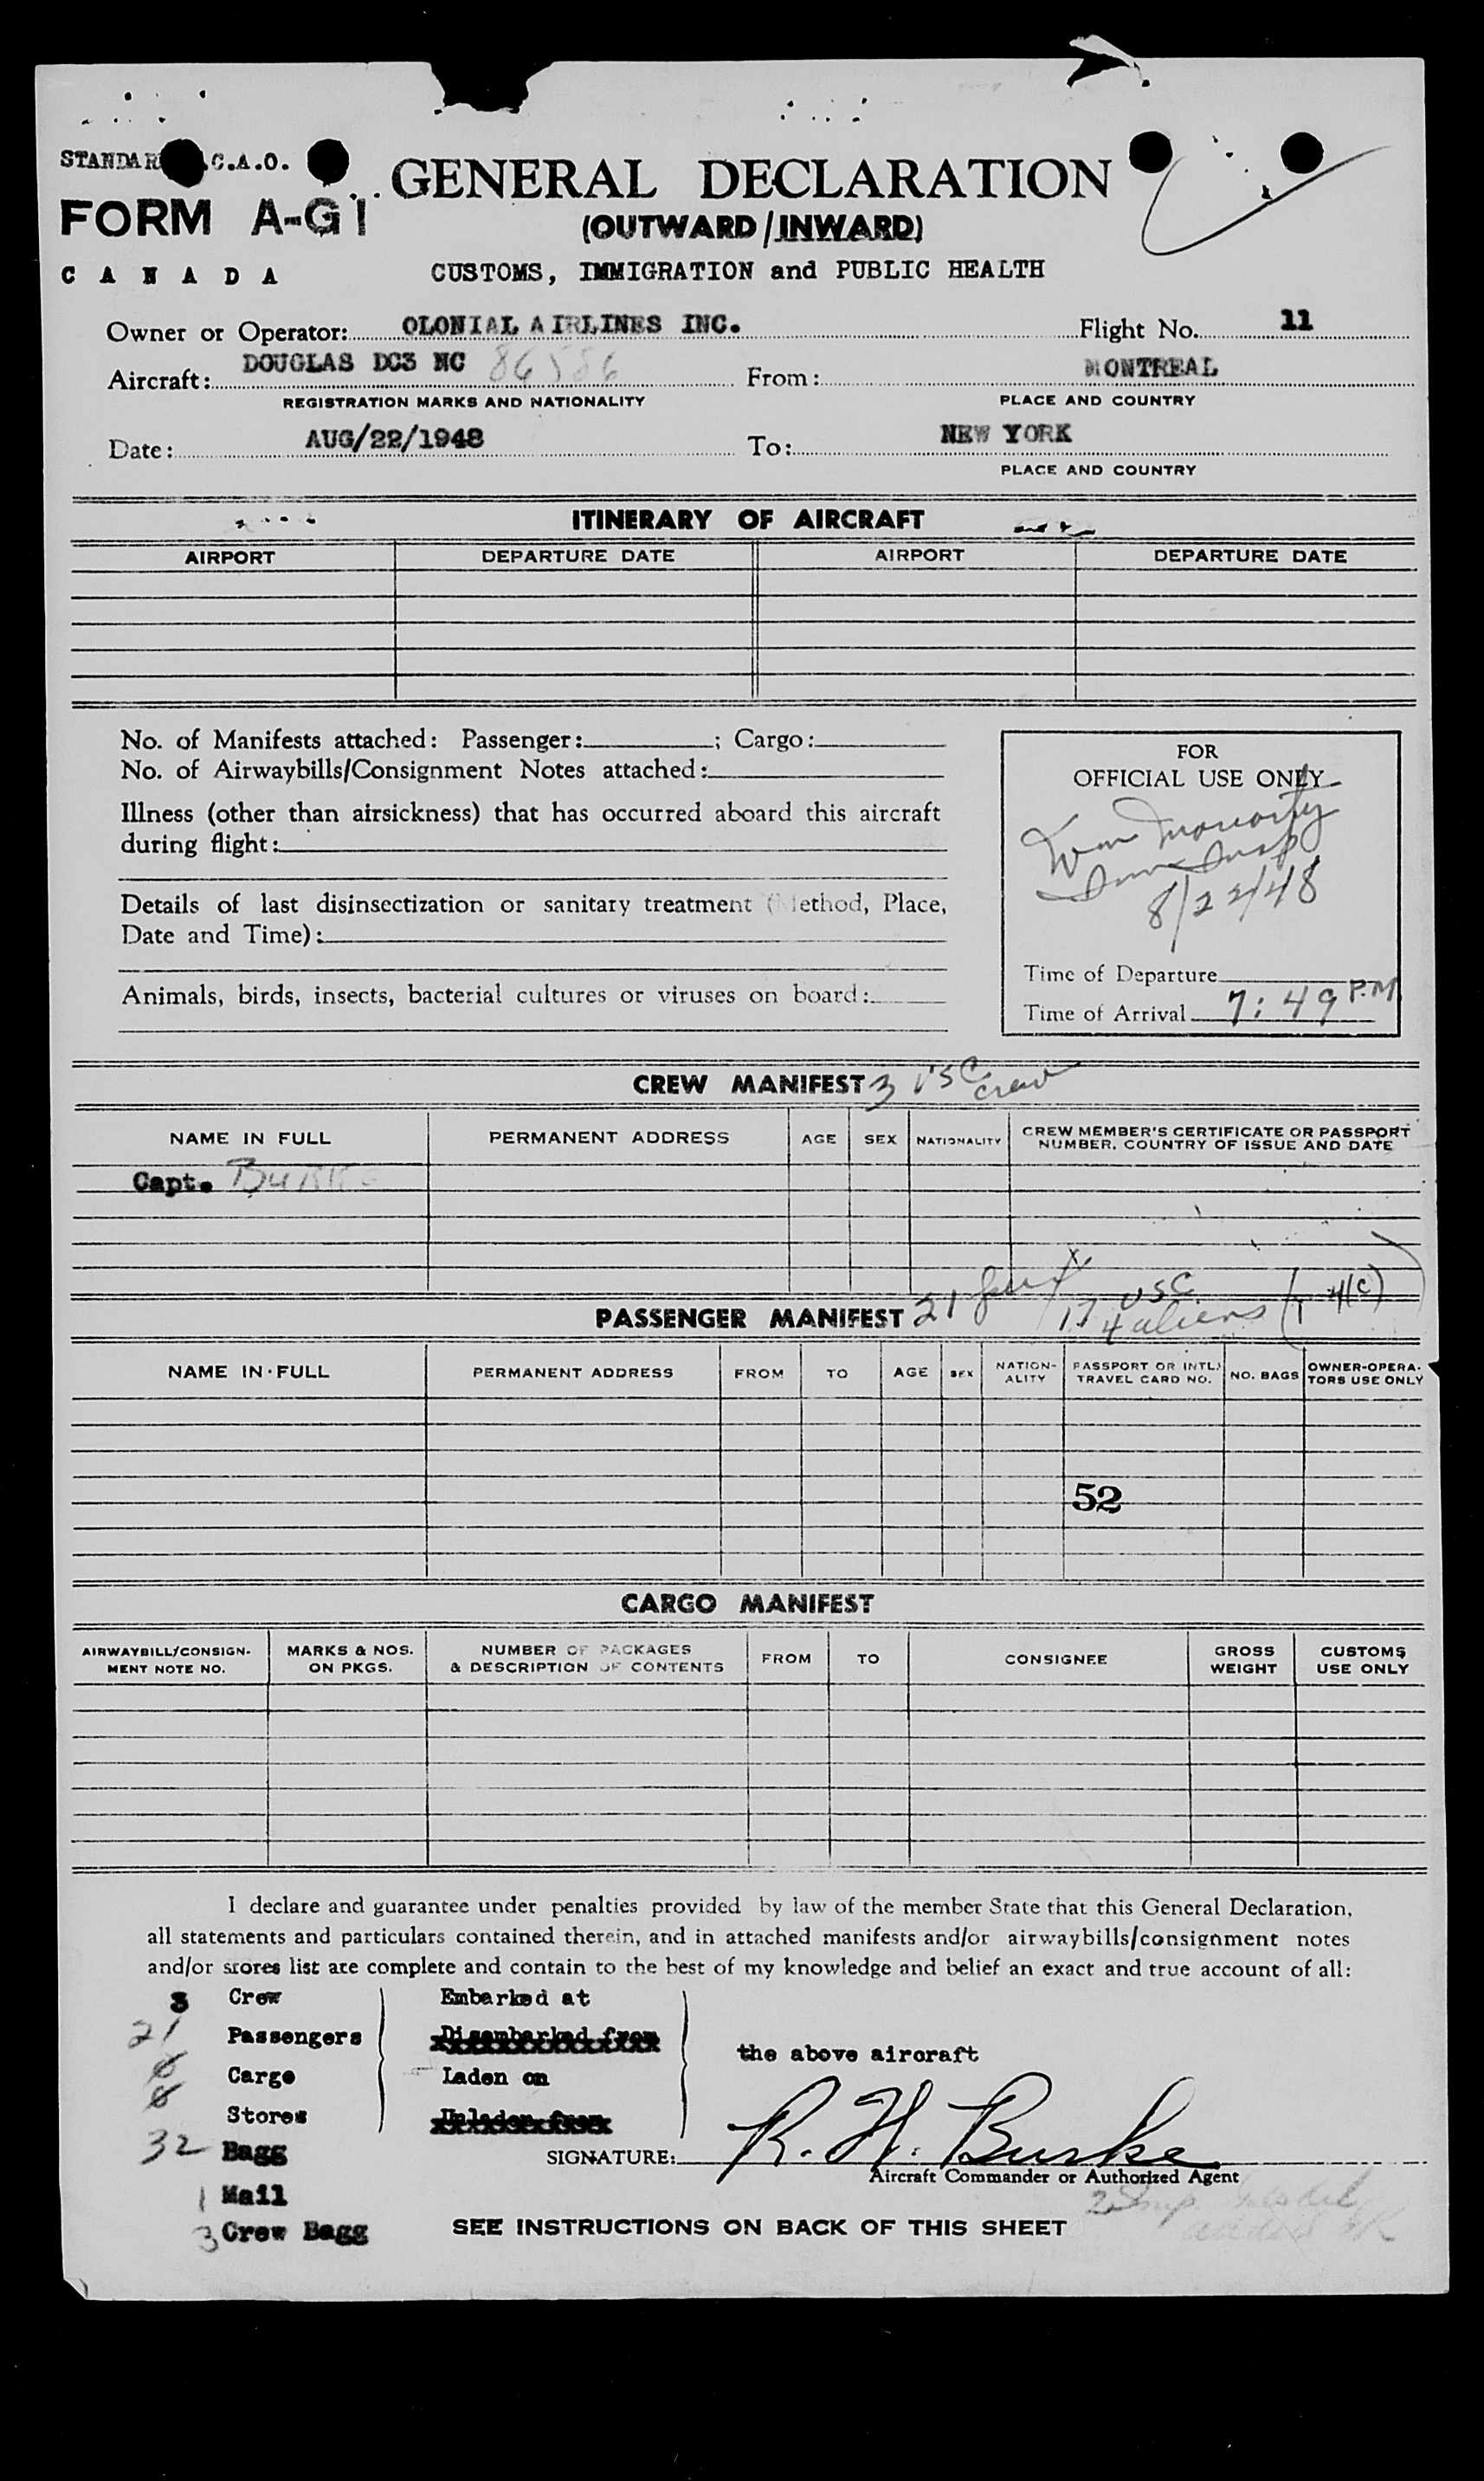 STANDAR C.A.O.
FORM A-G1
GENERAL DECLARATION
(OUTWARD/INWARD)
CANADA
CUSTOMS, IMMIGRATION and PUBLIC HEALTH
Owner or Operator: OLONIAL AIRLINES INC. Flight No. 11
Aircraft: DOUGLAS DC3 NC 86586 From: MONTREAL
REGISTRATION MARKS AND NATIONALITY PLACE AND COUNTRY
Date: AUG/22/1948 To: NEW YORK
PLACE AND COUNTRY
ITINERARY OF AIRCRAFT
AIRPORT DEPARTURE DATE AIRPORT DEPARTURE DATE
No. of Manifests attached: Passenger: ; Cargo:
No. of Airwaybills/Consignment Notes attached:
Illness (other than airsickness) that has occurred aboard this aircraft
during flight:
Details of last disinsectization or sanitary treatment (Method, Place,
Date and Time):
Animals, birds, insects, bacterial cultures or viruses on board:
FOR
OFFICIAL USE ONLY
Wm Moriarty
Imm Insp
8/22/48
Time of Departure
Time of Arrival 7:49 P.M.
CREW MANIFEST 3 USC crew
NAME IN FULL PERMANENT ADDRESS AGE SEX NATIONALITY CREW MEMBER'S CERTIFICATE OR PASSPORT
NUMBER, COUNTRY OF ISSUE AND DATE
Capt. Burke
PASSENGER MANIFEST 21 17 USC
4 aliens 4(c)
NAME IN FULL PERMANENT ADDRESS FROM TO AGE SEX NATION- PASSPORT OR INTL. NO. BAGS OWNER-OPERA-
ALITY TRAVEL CARD NO. TORS USE ONLY
52
CARGO MANIFEST
AIRWAYBILL/CONSIGN- MARKS & NOS. NUMBER OF PACKAGES FROM TO CONSIGNEE GROSS CUSTOMS
MENT NOTE NO. ON PKGS. & DESCRIPTION OF CONTENTS WEIGHT USE ONLY
I declare and guarantee under penalties provided by law of the member State that this General Declaration,
all statements and particulars contained therein, and in attached manifests and/or airwaybills/consignment notes
and/or stores list are complete and contain to the best of my knowledge and belief an exact and true account of all:
3 Crew Embarked at
21 Passengers Disembarked from
the above aircraft
0 Cargo Laden on
0 Stores Unladen from
32 Bagg
SIGNATURE: R. H. Burke
Aircraft Commander or Authorized Agent
1 Mail
3 Crew Bagg
SEE INSTRUCTIONS ON BACK OF THIS SHEET